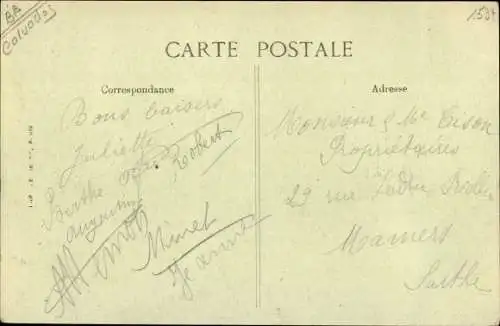 AA
Calvados
CARTE POSTALE
Correspondance
Adresse
Bons baisers
Juliette
Robert
Berthe
Augustine
Minet
Jeanne
Monsieur & Me Tison
Propriétaires
29 rue
Mamers
Sarthe